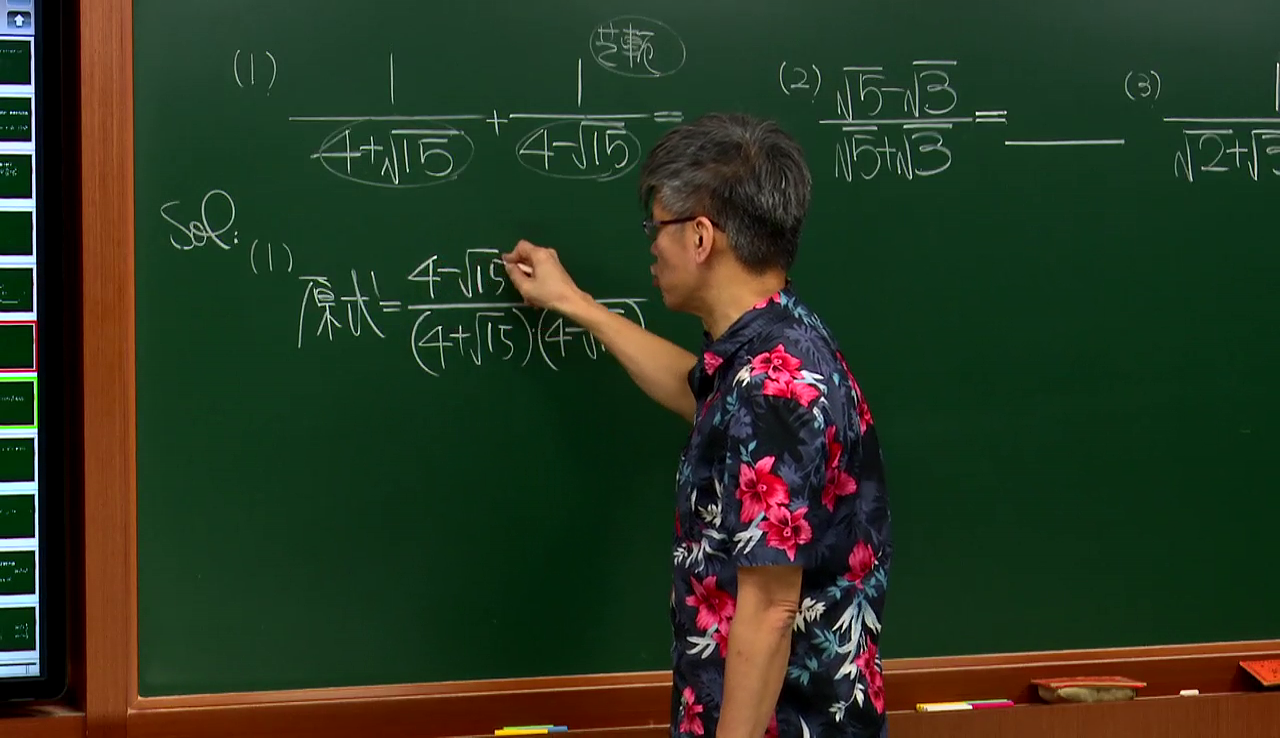 (1) 1/(4+√15) + 1/(4-√15) =
(2) (√5-√3)/(√5+√3) = ____
(3) 1/(√2+√3
Sol:
(1) 原式 = 4-√15 / (4+√15)·(4-√1